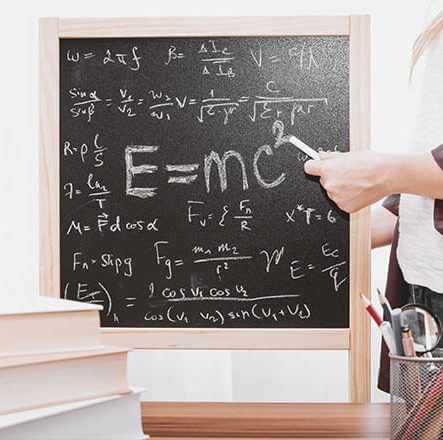 ω = 2πf β = ΔI_c / ΔI_B V = c/λ
sinα / sinβ = v₁ / v₂ = w₂ / w₁ V = 1 / √ε·μ = C / √εr μr
R = ρ l/S
E = mc²
λ = ln2 / T
M = F d cosα Fv = { Fn / R x*T = 6
Fn = Shρg Fg = m₁ m₂ / r² E = Ec / q
cos v₁ cos v₂
cos (v₁ v₂) sin (v₁+v₂)